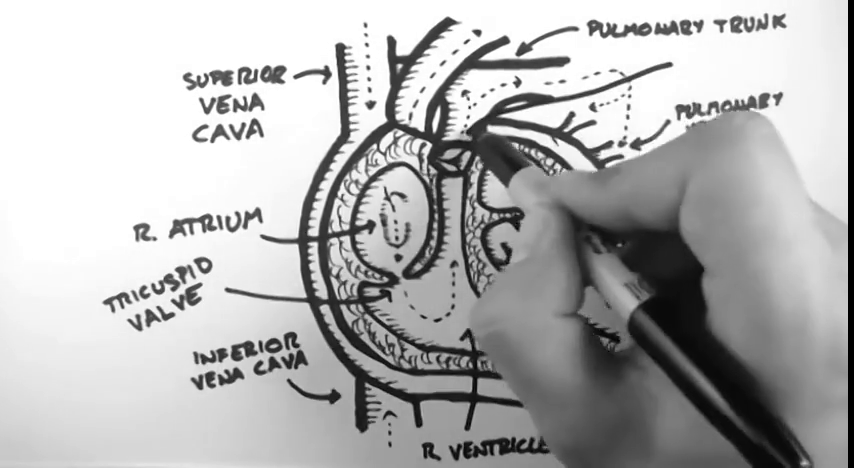 PULMONARY TRUNK
SUPERIOR
VENA
CAVA
PULMONARY
R. ATRIUM
TRICUSPID
VALVE
INFERIOR
VENA CAVA
R. VENTRICLE